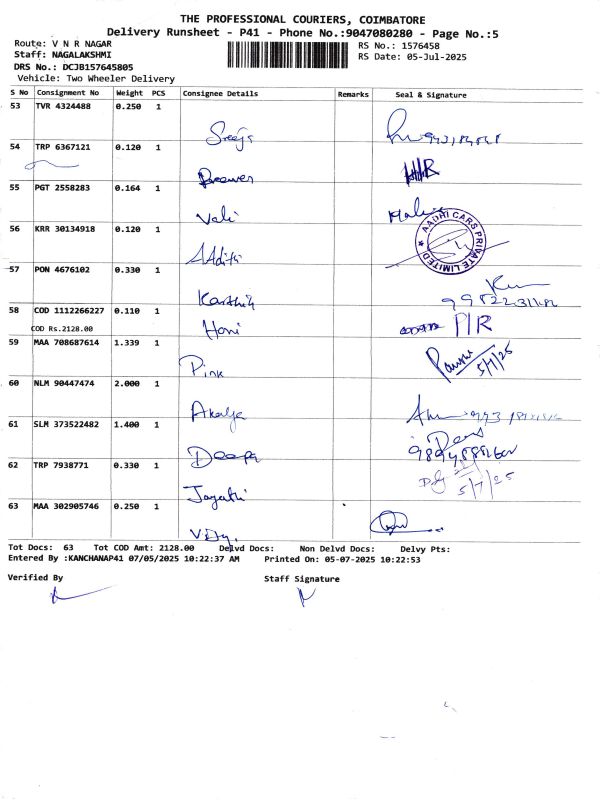 THE PROFESSIONAL COURIERS, COIMBATORE
Delivery Runsheet - P41 - Phone No.:9047080280 - Page No.:5
Route: V N R NAGAR
RS No.: 1576458
Staff: NAGALAKSHMI
RS Date: 05-Jul-2025
DRS No.: DCJB157645805
Vehicle: Two Wheeler Delivery
S No Consignment No Weight PCS Consignee Details Remarks Seal & Signature
53 TVR 4324488 0.250 1
Sreeja
54 TRP 6367121 0.120 1
55 PGT 2558283 0.164 1
Vali
56 KRR 30134918 0.120 1
AAdithi
AADRI CARS PRIVATE LIMITED
57 PON 4676102 0.330 1
Karthik
58 COD 1112266227 0.110 1
COD Rs.2128.00
Honi
P/R
59 MAA 708687614 1.339 1
Pink
5/7/25
60 NLM 90447474 2.000 1
Akalya
61 SLM 373522482 1.400 1
Deepa
62 TRP 7938771 0.330 1
5/7/25
Jayathi
63 MAA 302905746 0.250 1
Tot Docs: 63 Tot COD Amt: 2128.00 Delvd Docs: Non Delvd Docs: Delvy Pts:
Entered By :KANCHANAP41 07/05/2025 10:22:37 AM Printed On: 05-07-2025 10:22:53
Verified By Staff Signature